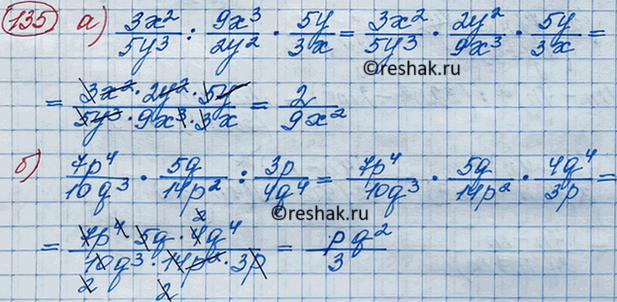 135 а) 3x²/5y³ : 9x³/2y² · 5y/3x = 3x²/5y³ · 2y²/9x³ · 5y/3x =
©reshak.ru
= 3x² · 2y² · 5y / 5y³ · 9x³ · 3x = 2/9x²
б) 7p⁴/10q³ · 5q/14p² : 3p/4q⁴ = 7p⁴/10q³ · 5q/14p² · 4q⁴/3p =
©reshak.ru
= 7p⁴ · 5q · 4q⁴ / 10q³ · 14p² · 3p = pq²/3
2 2 2